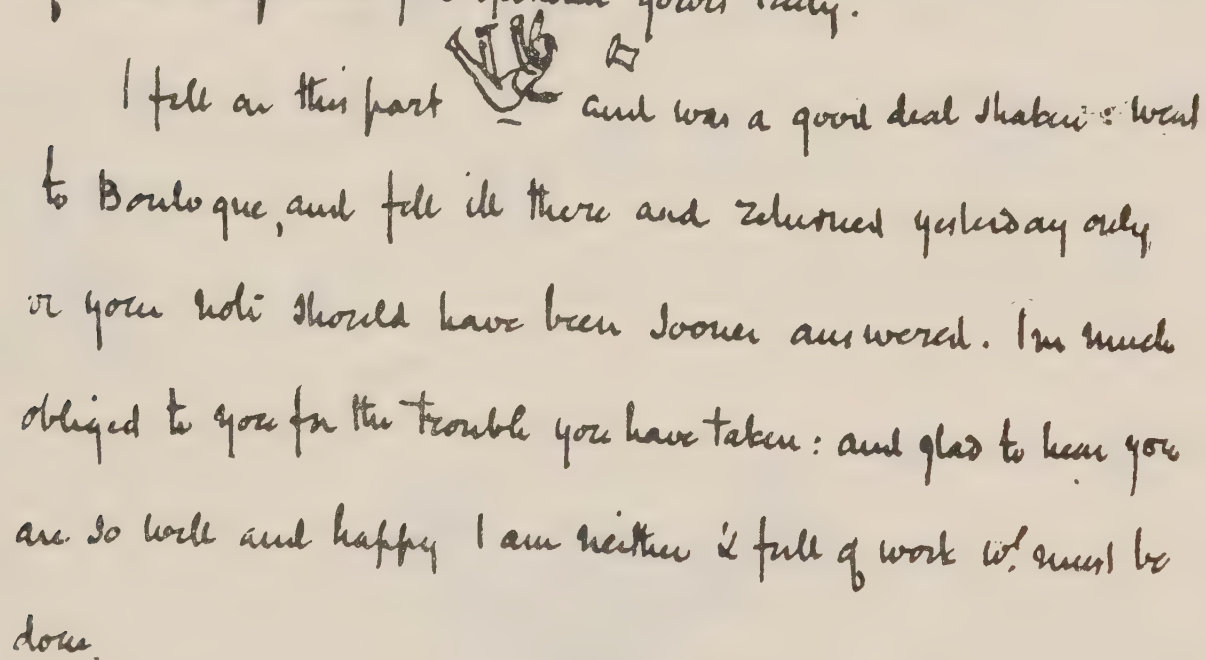 yours truly.
I fell on this part and was a good deal shaken: went
to Boulogne, and fell ill there and returned yesterday only,
or your note should have been sooner answered. Im much
obliged to you for the trouble you have taken: and glad to hear you
are so well and happy I am neither & full of work wh. must be
done.